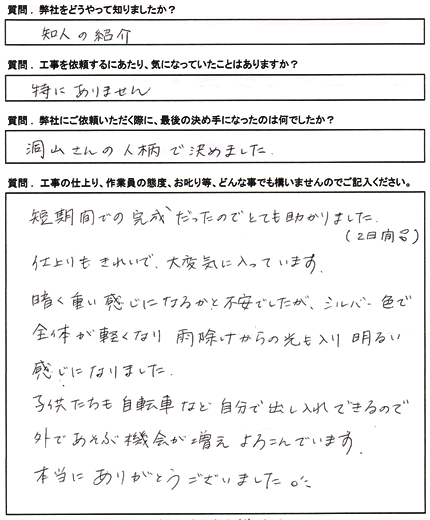 質問．弊社をどうやって知りましたか？
知人の紹介
質問．工事を依頼するにあたり、気になっていたことはありますか？
特にありません
質問．弊社にご依頼いただく際に、最後の決め手になったのは何でしたか？
洞山さんの人柄で決めました．
質問．工事の仕上り、作業員の態度、お叱り等、どんな事でも構いませんのでご記入ください。
短期間での完成だったのでとても助かりました．
(2日間号)
仕上りもきれいで、大変気に入っています．
暗く重い感じになるかと不安でしたが、シルバー色で
全体が軽くなり 雨除けからの光も入り 明るい
感じになりました．
子供たちも自転車など自分で出し入れできるので
外であそぶ機会が増え よろこんでいます．
本当に ありがとうございました